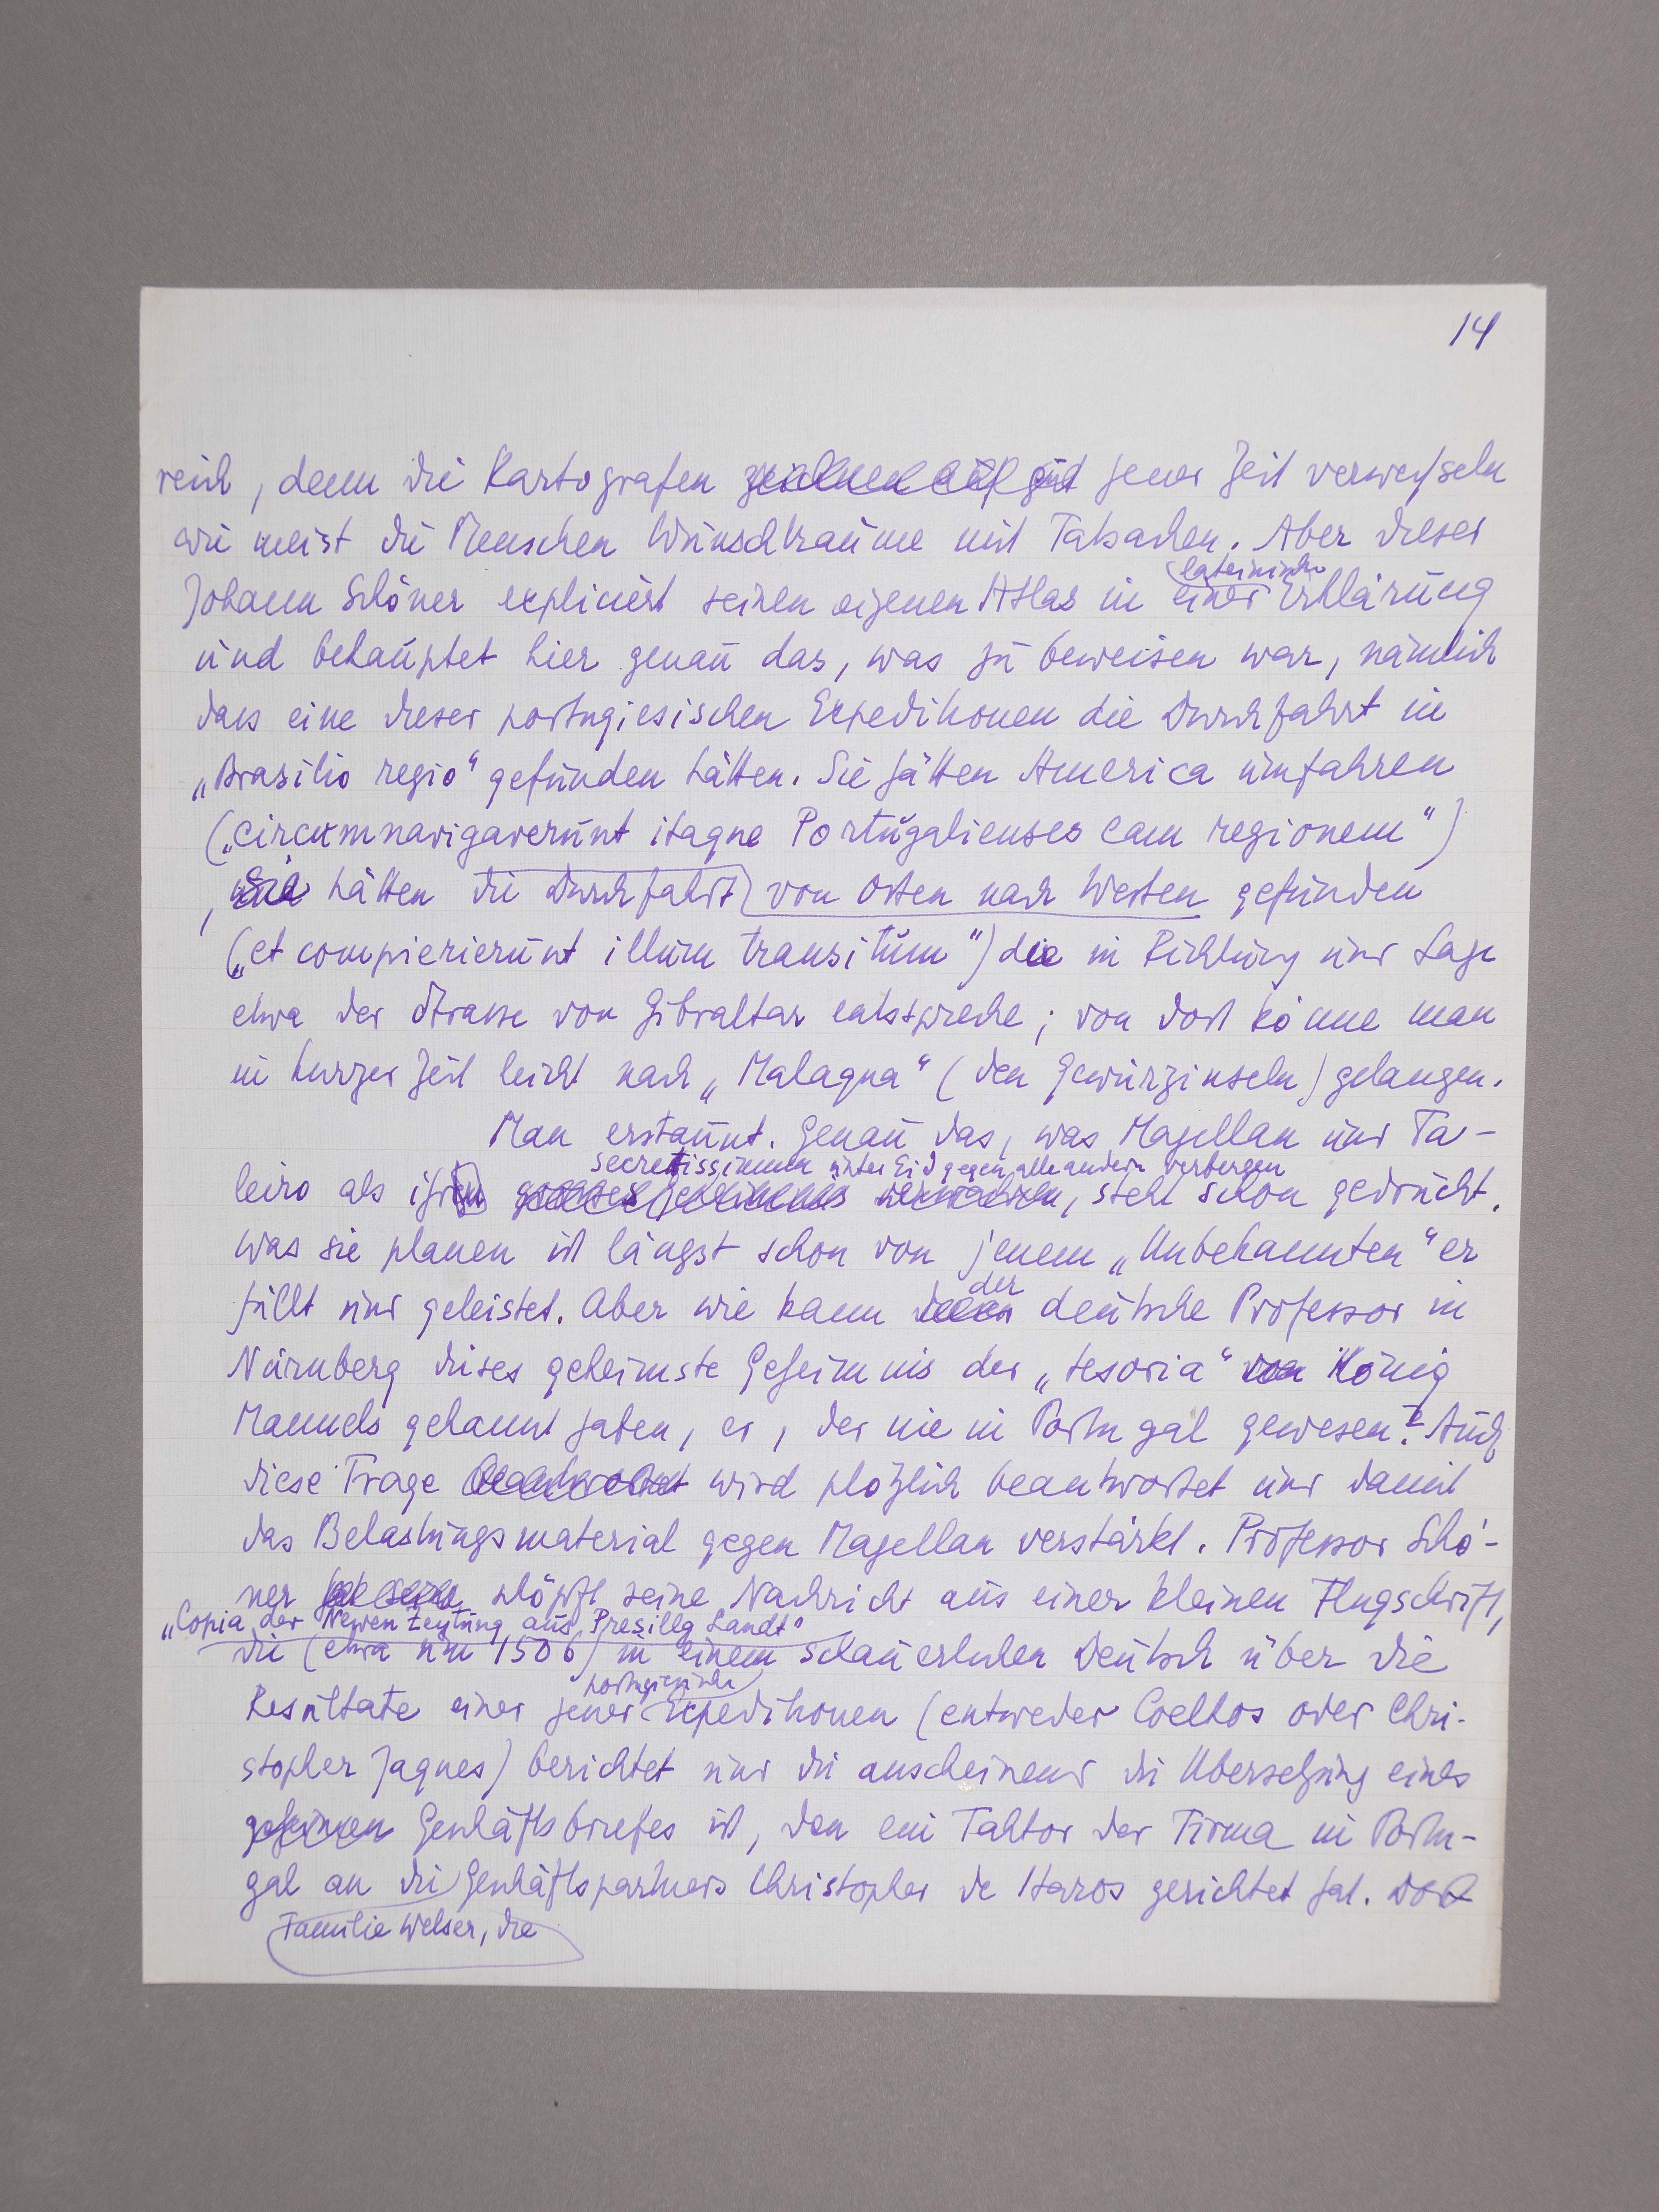 14
reich, denn die Kartografen jener Zeit verwechseln
wie meist die Menschen Wunschträume mit Tatsachen. Aber dieser
Johann Schöner expliciert seinen eigenen Atlas in einer lateinischen Erklärung
und behauptet hier genau das, was zu beweisen war, nämlich
dass eine dieser portugiesischen Expeditionen die Durchfahrt in
„Brasilio regio“ gefunden hätten. Sie hätten America umfahren
(„circumnavigaverunt itaque Portugalienses eam regionem“)
, sie hätten die Durchfahrt von Osten nach Westen gefunden
(„et compierierunt illum transitum“) die in Richtung und Lage
etwa der Strasse von Gibraltar entspreche; von dort könne man
in kurzer Zeit leicht nach „Malaqua“ (den Gewürzinseln) gelangen.
Man erstaunt. Genau das, was Magellan und Fa-
leiro als ihr secretissimum unter Eid gegen alle andern verbergen, steht schon gedruckt.
Was sie planen ist längst schon von jenem „Unbekannten“ er
füllt und geleistet. Aber wie kann der deutsche Professor in
Nürnberg dises geheimste Geheimnis der „tesoria“ König
Manuels gekannt haben, er, der nie in Portugal gewesen? Auch
diese Frage wird plötzlich beantwortet und damit
das Belastungsmaterial gegen Magellan verstärkt. Professor Schö-
ner schöpft seine Nachricht aus einer kleinen Flugschrift,
„Copia der Newen Zeytung aus Presillg Landt“
die (etwa um 1506) in einem schauerlichen Deutsch über die
Resultate einer jener portugiesischen Expeditionen (entweder Coelhos oder Chri-
stopher Jaques) berichtet und die anscheinend die Übersetzung eines
geheimen Geschäftsbriefes ist, den ein Faktor der Firma in Portu-
gal an die Familie Welser, die Geschäftspartners Christopher de Haros gerichtet hat. Dort